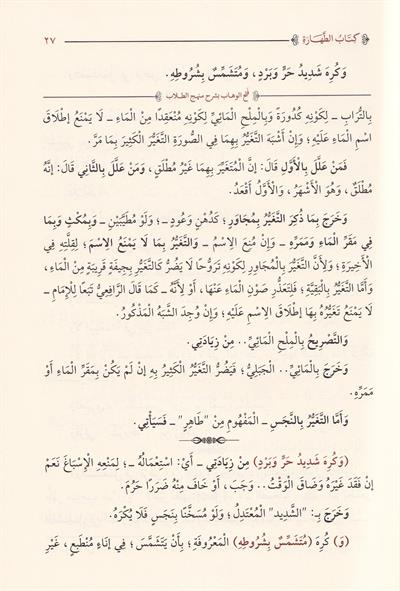 كِتَابُ الطَّهَارَةِ
٢٧
وَكُرِهَ شَدِيدُ حَرٍّ وَبَرْدٍ، وَمُتَشَمِّسٌ بِشُرُوطِهِ.
فتح الوهاب بشرح منهج الطلاب
بِالتُّرَابِ ـ لِكَوْنِهِ كُدُورَةً وَبِالْمِلْحِ الْمَائِيِّ لِكَوْنِهِ مُنْعَقِدًا مِنْ الْمَاءِ ـ لَا يَمْنَعُ إطْلَاقَ
اسْمِ الْمَاءِ عَلَيْهِ؛ وَإِنْ أَشْبَهَ التَّغَيُّرُ بِهِمَا فِي الصُّورَةِ التَّغَيُّرَ الْكَثِيرَ بِمَا مَرَّ.
فَمَنْ عَلَّلَ بِالْأَوَّلِ قَالَ: إنَّ الْمُتَغَيِّرَ بِهِمَا غَيْرُ مُطْلَقٍ، وَمَنْ عَلَّلَ بِالثَّانِي قَالَ: إنَّهُ
مُطْلَقٌ، وَهُوَ الْأَشْهَرُ، وَالْأَوَّلُ أَقْعَدُ.
وَخَرَجَ بِمَا ذُكِرَ التَّغَيُّرُ بِمُجَاوِرٍ؛ كَدُهْنٍ وَعُودٍ ـ؛ وَلَوْ مُطَيَّبَيْنِ ـ وَبِمُكْثٍ وَبِمَا
فِي مَقَرِّ الْمَاءِ وَمَمَرِّهِ ـ وَإِنْ مُنِعَ الِاسْمُ ـ وَالتَّغَيُّرُ بِمَا لَا يَمْنَعُ الِاسْمَ؛ لِقِلَّتِهِ فِي
الْأَخِيرَةِ؛ وَلِأَنَّ التَّغَيُّرَ بِالْمُجَاوِرِ لِكَوْنِهِ تَرَوُّحًا لَا يَضُرُّ كَالتَّغَيُّرِ بِجِيفَةٍ قَرِيبَةٍ مِنْ الْمَاءِ،
وَأَمَّا التَّغَيُّرُ بِالْبَقِيَّةِ؛ فَلِتَعَذُّرِ صَوْنِ الْمَاءِ عَنْهَا، أَوْ لِأَنَّهُ ـ كَمَا قَالَ الرَّافِعِيُّ تَبَعًا لِلْإِمَامِ ـ
لَا يَمْنَعُ تَغَيُّرُهُ بِهَا إطْلَاقَ الِاسْمِ عَلَيْهِ؛ وَإِنْ وُجِدَ الشَّبَهُ الْمَذْكُورُ.
وَالتَّصْرِيحُ بِالْمِلْحِ الْمَائِيِّ.. مِنْ زِيَادَتِي.
وَخَرَجَ بِالْمَائِيِّ.. الْجَبَلِيُّ؛ فَيَضُرُّ التَّغَيُّرُ الْكَثِيرُ بِهِ إنْ لَمْ يَكُنْ بِمَقَرِّ الْمَاءِ أَوْ
مَمَرِّهِ.
وَأَمَّا التَّغَيُّرُ بِالنَّجَسِ ـ الْمَفْهُومِ مِنْ "طَاهِرٍ" ـ فَسَيَأْتِي.
(وَكُرِهَ شَدِيدُ حَرٍّ وَبَرْدٍ) مِنْ زِيَادَتِي ـ أَيْ: اسْتِعْمَالُهُ ـ؛ لِمَنْعِهِ الْإِسْبَاغَ نَعَمْ
إنْ فَقَدَ غَيْرَهُ وَضَاقَ الْوَقْتُ.. وَجَبَ، أَوْ خَافَ مِنْهُ ضَرَرًا حَرُمَ.
وَخَرَجَ بِـ: "الشَّدِيدِ" الْمُعْتَدِلُ؛ وَلَوْ مُسَخَّنًا بِنَجَسٍ فَلَا يُكْرَهُ.
(وَ) كُرِهَ (مُتَشَمِّسٌ بِشُرُوطِهِ) الْمَعْرُوفَةِ؛ بِأَنْ يَتَشَمَّسَ؛ فِي إنَاءٍ مُنْطَبِعٍ، غَيْرِ